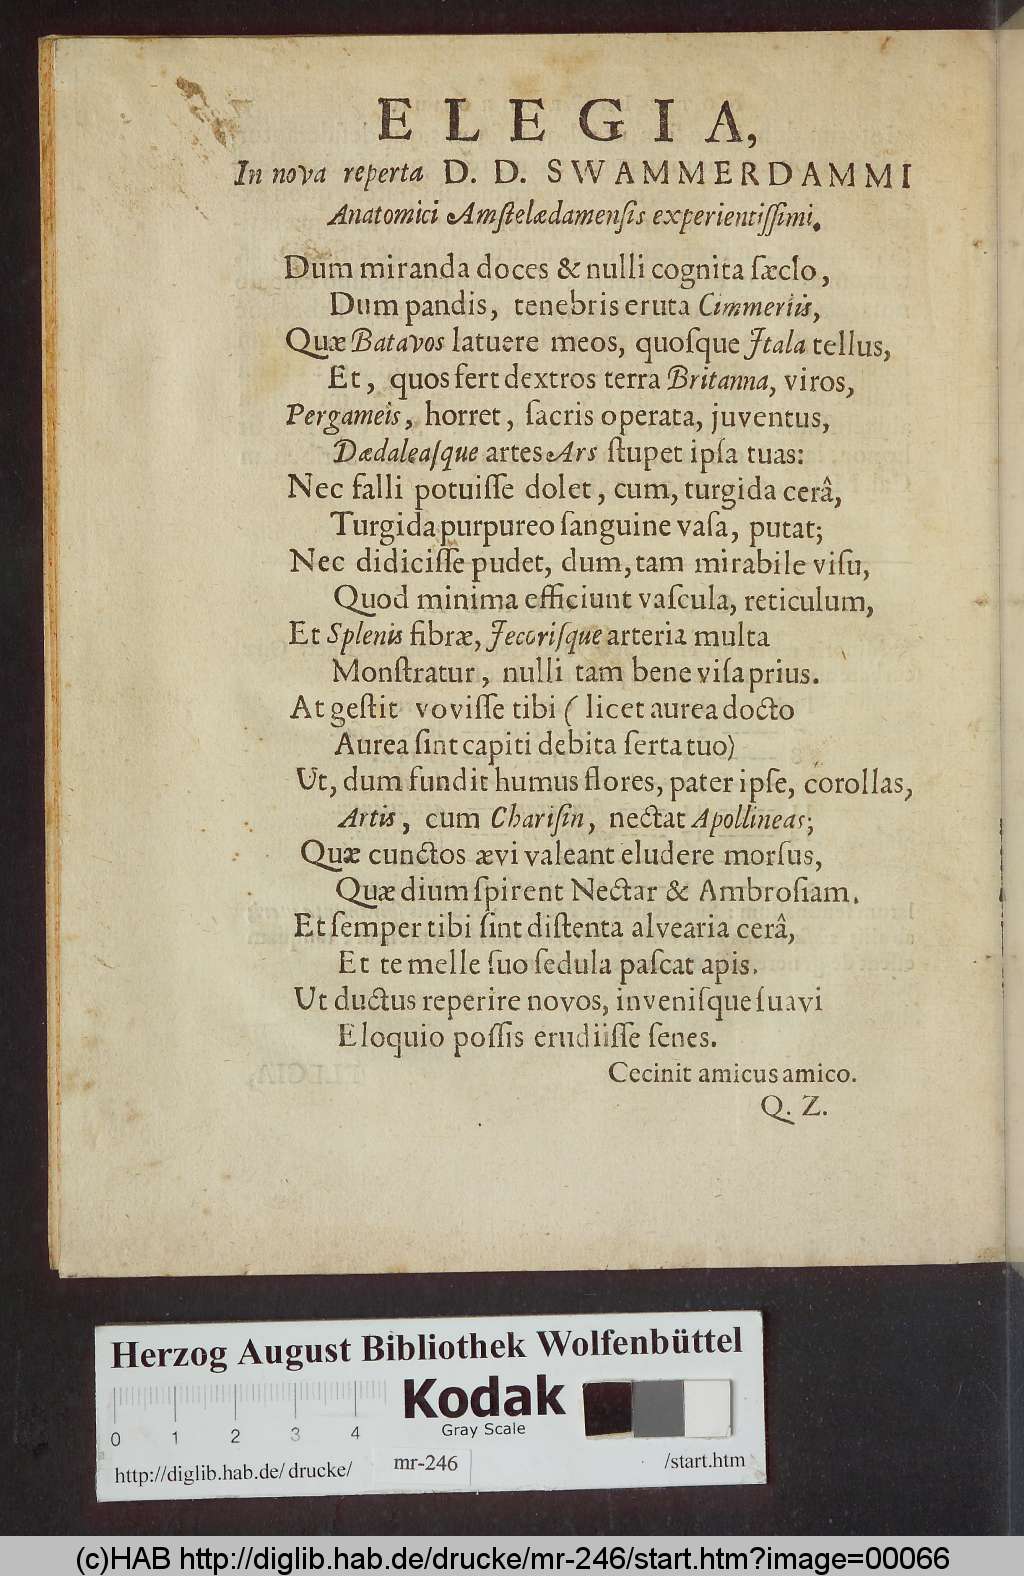 ELEGIA,
In nova reperta D. D. SWAMMERDAMMI
Anatomici Amſtelædamenſis experientiſſimi.
Dum miranda doces & nulli cognita ſæclo,
Dum pandis, tenebris eruta Cimmeriis,
Quæ Batavos latuere meos, quoſque Itala tellus,
Et, quos fert dextros terra Britanna, viros,
Pergameis, horret, ſacris operata, juventus,
Dædaleaſque artes Ars ſtupet ipſa tuas:
Nec falli potuiſſe dolet, cum, turgida cerâ,
Turgida purpureo ſanguine vaſa, putat;
Nec didiciſſe pudet, dum, tam mirabile viſu,
Quod minima efficiunt vaſcula, reticulum,
Et Splenis fibræ, Jecoriſque arteria multa
Monſtratur, nulli tam bene viſa prius.
At geſtit voviſſe tibi (licet aurea docto
Aurea ſint capiti debita ſerta tuo)
Ut, dum fundit humus flores, pater ipſe, corollas,
Artis, cum Chariſin, nectat Apollineas;
Quæ cunctos ævi valeant eludere morſus,
Quæ dium ſpirent Nectar & Ambroſiam.
Et ſemper tibi ſint diſtenta alvearia cerâ,
Et te melle ſuo ſedula paſcat apis.
Ut ductus reperire novos, inveniſque ſuavi
Eloquio poſſis erudiiſſe ſenes.
Cecinit amicus amico.
Q. Z.
Herzog August Bibliothek Wolfenbüttel
Kodak
Gray Scale
0 1 2 3 4
http://diglib.hab.de/drucke/ mr-246 /start.htm
(c)HAB http://diglib.hab.de/drucke/mr-246/start.htm?image=00066